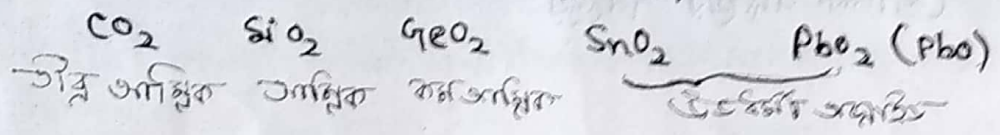 CO₂ SiO₂ GeO₂ SnO₂ PbO₂ (PbO)
তীব্র অম্লিক অম্লিক কম অম্লিক উভধর্মী